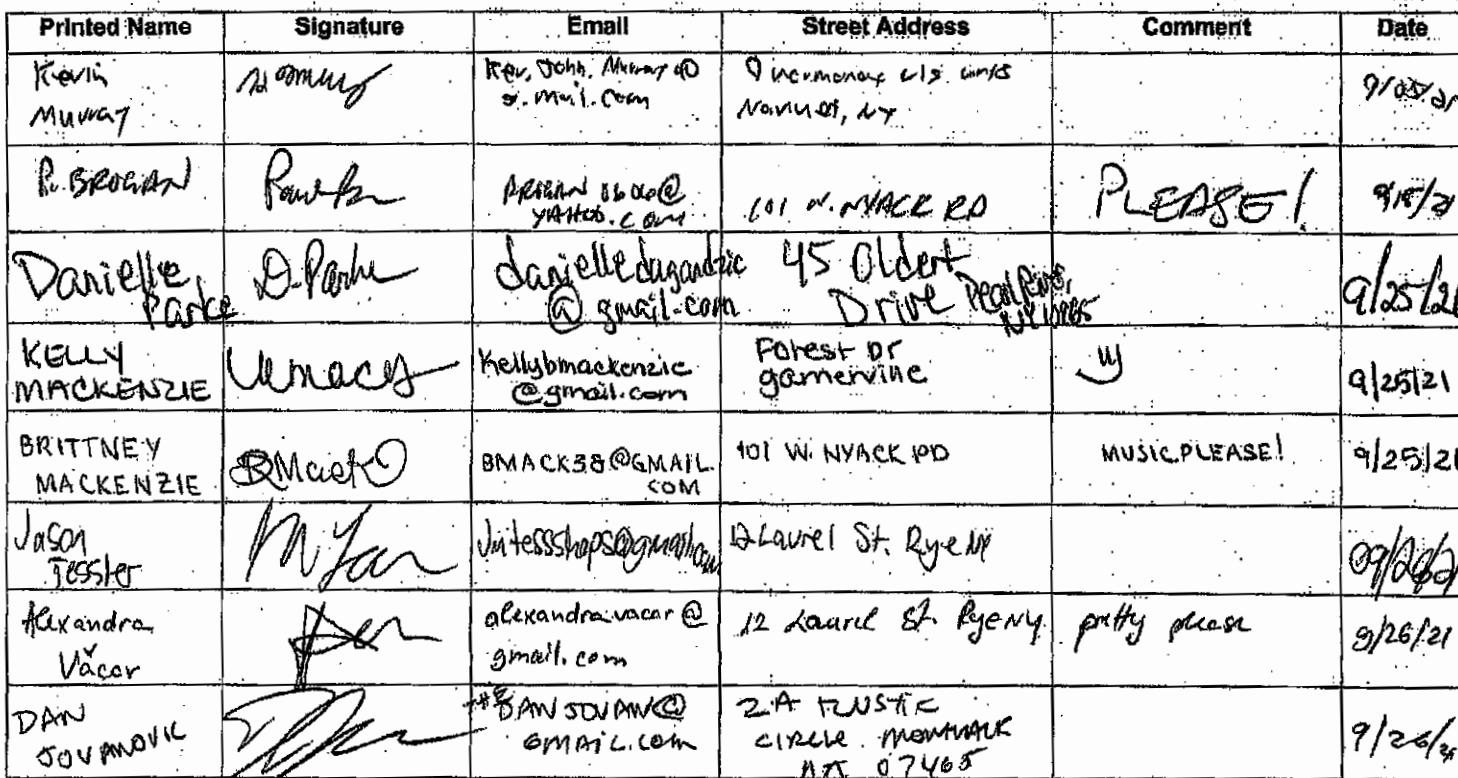 Printed Name Signature Email Street Address Comment Date
Kevin
Murray
Kev. John. Murray @
g.mail.com
Nanuet, NY
P. BROGAN
YAHOO.COM
101 W. NYACK RD
PLEASE!
Danielle
Parke
D. Parke
danielledugandzic
@ gmail.com
45 Oldert
Drive Pearl River,
NY 10965
9/25/21
KELLY
MACKENZIE
Kellybmackenzie
@gmail.com
Forest Dr
garnerville
9/25/21
BRITTNEY
MACKENZIE
BMACK38@GMAIL.
COM
101 W. NYACK RD
MUSIC PLEASE!
9/25/21
Jason
Tessler
12 Laurel St. Rye NY
Alexandra
Văcar
alexandra.vacar@
gmail.com
12 Laurel St. Rye NY
pretty please
9/26/21
DAN
JOVANOVIC
DANJOVAN@
GMAIL.COM
2A RUSTIC
CIRCLE
07465
9/26/21